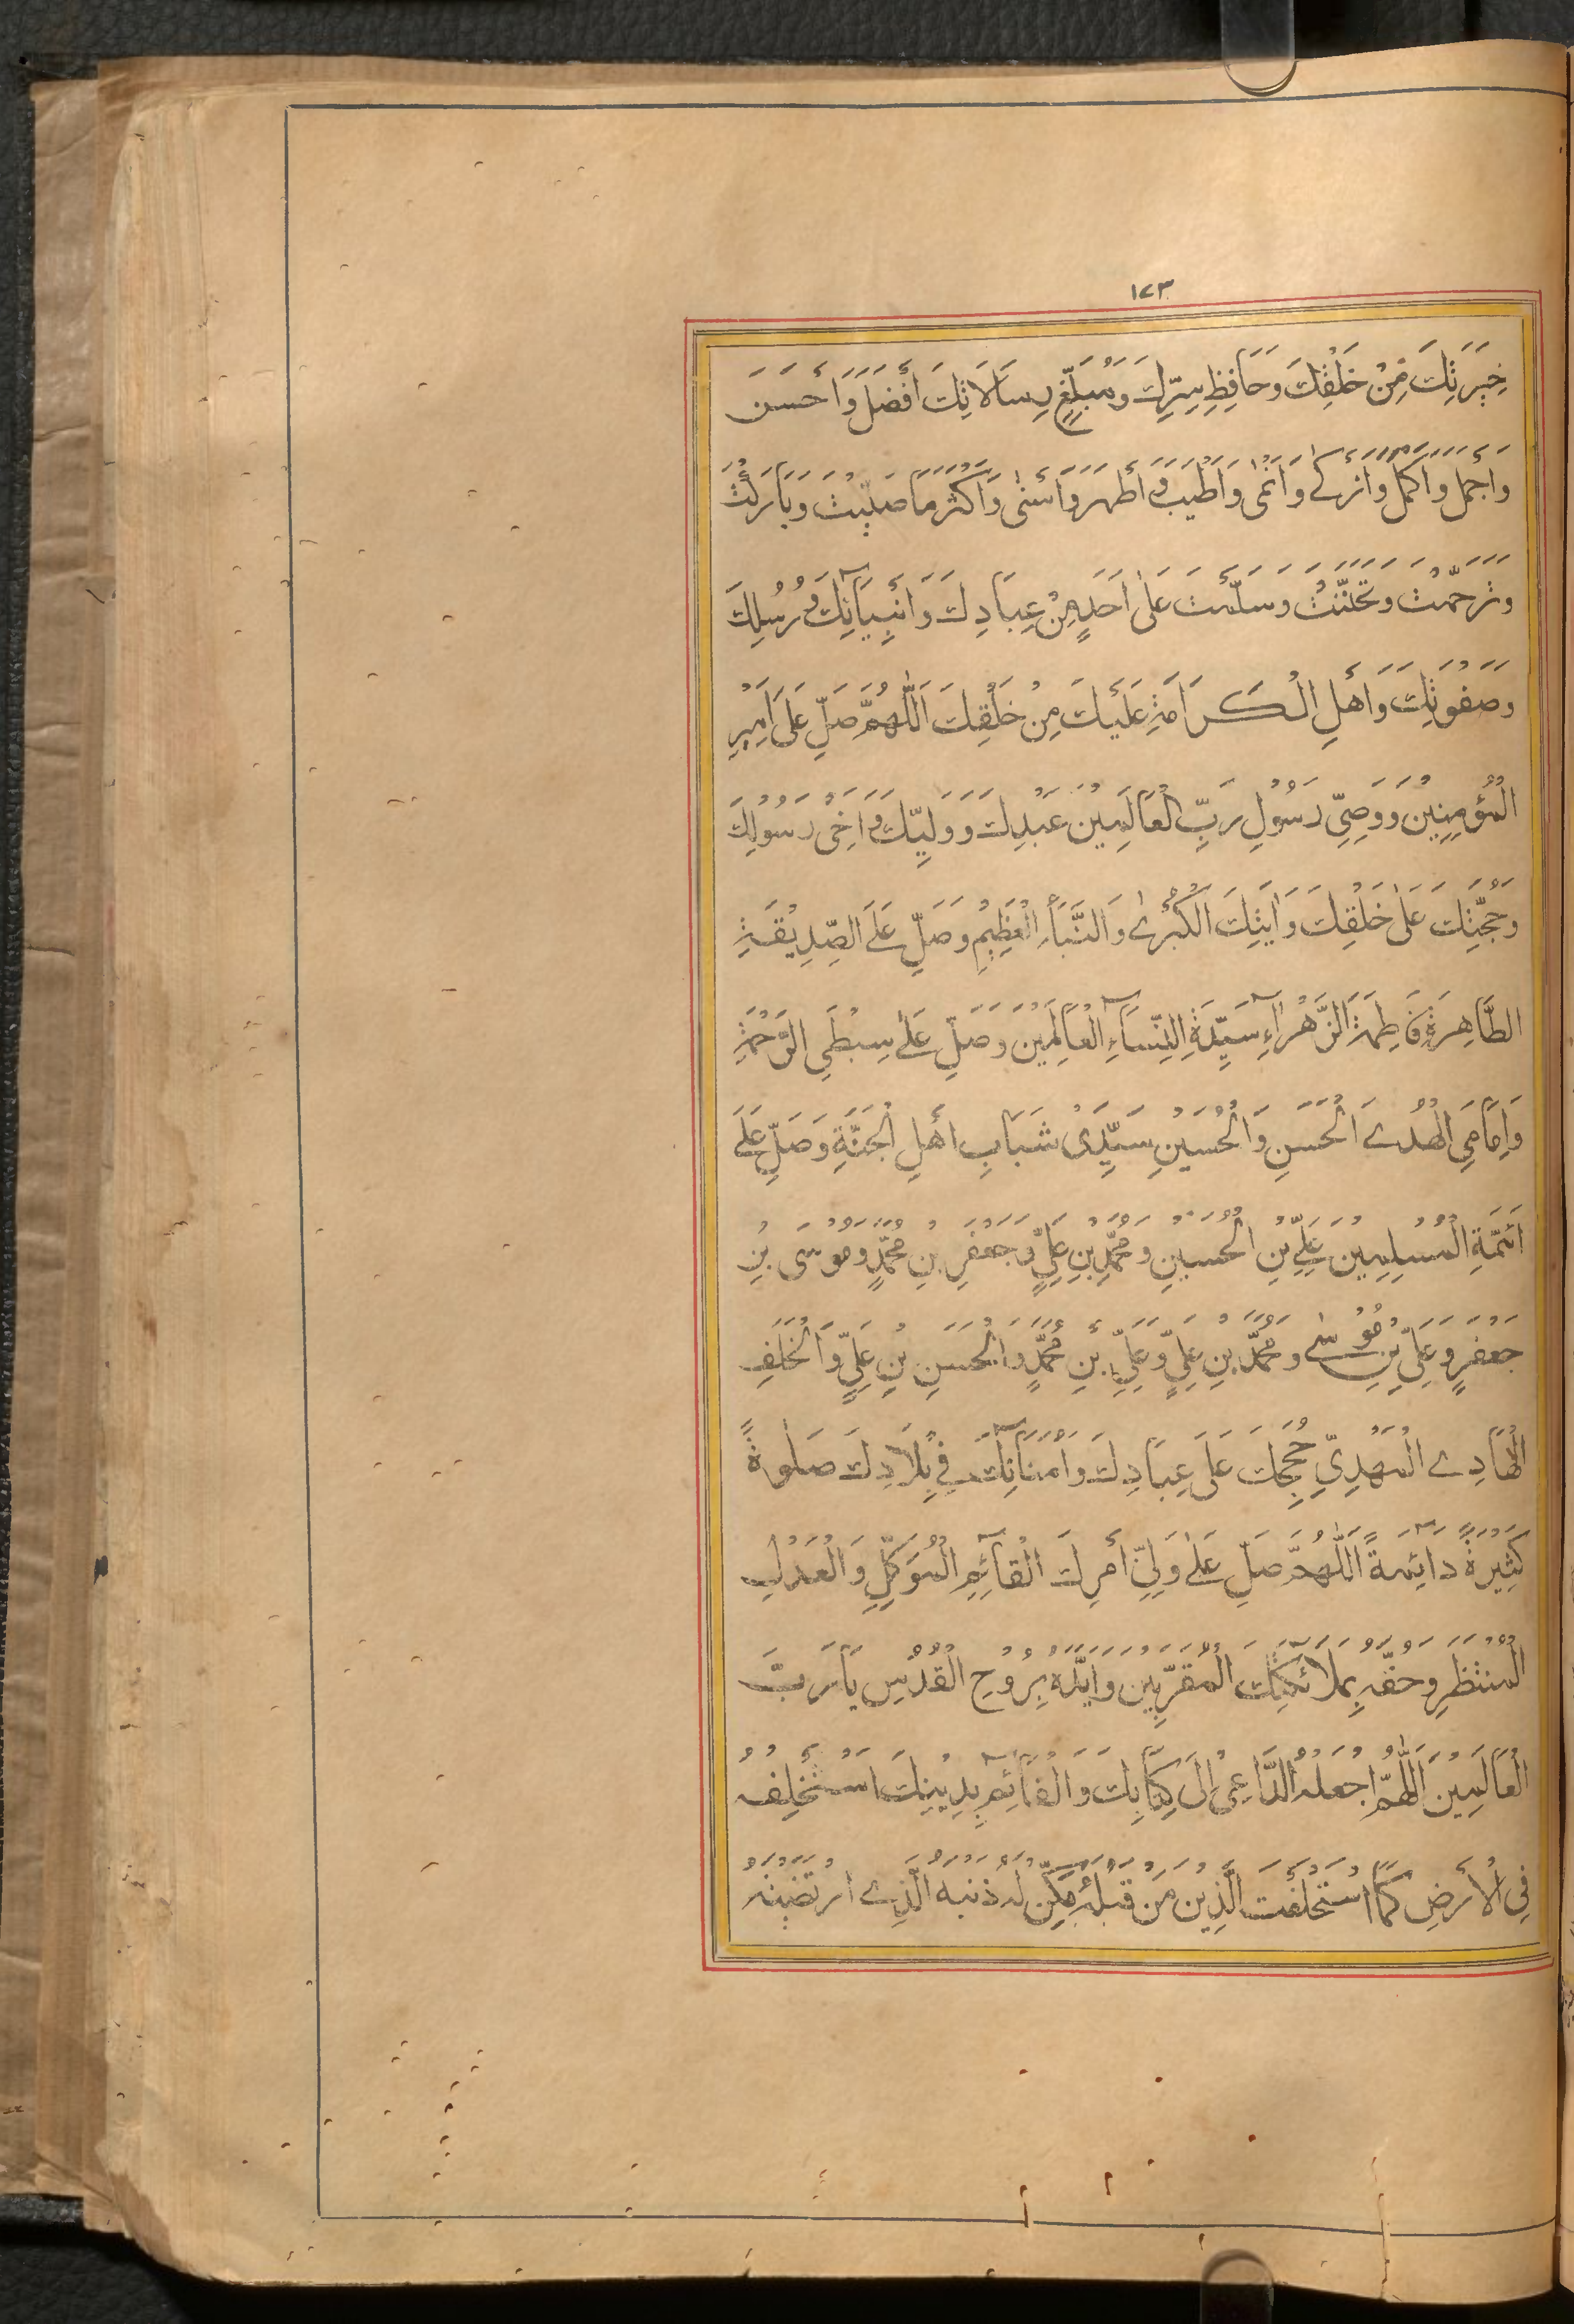 ١٧٣
خِيَرَتِكَ مِنْ خَلْقِكَ وَحَافِظِ سِرِّكَ وَمُبَلِّغِ رِسَالَاتِكَ أَفْضَلَ وَأَحْسَنَ
وَأَجْمَلَ وَأَكْمَلَ وَأَزْكَى وَأَنْمَى وَأَطْيَبَ وَأَطْهَرَ وَأَسْنَى وَأَكْثَرَ مَا صَلَّيْتَ وَبَارَكْتَ
وَتَرَحَّمْتَ وَتَحَنَّنْتَ وَسَلَّمْتَ عَلَى أَحَدٍ مِنْ عِبَادِكَ وَأَنْبِيَآئِكَ وَرُسُلِكَ
وَصَفْوَتِكَ وَأَهْلِ الْكَرَامَةِ عَلَيْكَ مِنْ خَلْقِكَ اَللَّهُمَّ صَلِّ عَلَى أَمِيرِ
الْمُؤْمِنِيْنَ وَوَصِيِّ رَسُوْلِ رَبِّ الْعَالَمِيْنَ عَبْدِكَ وَوَلِيِّكَ وَأَخِيْ رَسُوْلِكَ
وَحُجَّتِكَ عَلَى خَلْقِكَ وَآيَتِكَ الْكُبْرَى وَالنَّبَأِ الْعَظِيْمِ وَصَلِّ عَلَى الصِّدِيْقَةِ
الطَّاهِرَةِ فَاطِمَةَ الزَّهْرَآءِ سَيِّدَةِ النِّسَآءِ الْعَالَمِيْنَ وَصَلِّ عَلَى سِبْطَيِ الرَّحْمَةِ
وَإِمَامَيِ الْهُدَى الْحَسَنِ وَالْحُسَيْنِ سَيِّدَيْ شَبَابِ أَهْلِ الْجَنَّةِ وَصَلِّ عَلَى
أَئِمَّةِ الْمُسْلِمِيْنَ عَلِيِّ بْنِ الْحُسَيْنِ وَمُحَمَّدِ بْنِ عَلِيٍّ وَجَعْفَرِ بْنِ مُحَمَّدٍ وَمُوْسَى بْنِ
جَعْفَرٍ وَعَلِيِّ بْنِ مُوْسَى وَمُحَمَّدِ بْنِ عَلِيٍّ وَعَلِيِّ بْنِ مُحَمَّدٍ وَالْحَسَنِ بْنِ عَلِيٍّ وَالْخَلَفِ
الْهَادِي الْمَهْدِيِّ حُجَجِكَ عَلَى عِبَادِكَ وَأُمَنَآئِكَ فِي بِلَادِكَ صَلَوةً
كَثِيْرَةً دَآئِمَةً اَللَّهُمَّ صَلِّ عَلَى وَلِيِّ أَمْرِكَ الْقَآئِمِ الْمُؤَمَّلِ وَالْعَدْلِ
الْمُنْتَظَرِ وَحُفَّهُ بِمَلَآئِكَتِكَ الْمُقَرَّبِيْنَ وَأَيِّدْهُ بِرُوْحِ الْقُدُسِ يَا رَبَّ
الْعَالَمِيْنَ اَللَّهُمَّ اجْعَلْهُ الدَّاعِيَ إِلَى كِتَابِكَ وَالْقَآئِمَ بِدِيْنِكَ اسْتَخْلِفْهُ
فِي الْأَرْضِ كَمَا اسْتَخْلَفْتَ الَّذِيْنَ مِنْ قَبْلِهِ مَكِّنْ لَهُ دِيْنَهُ الَّذِي ارْتَضَيْتَهُ